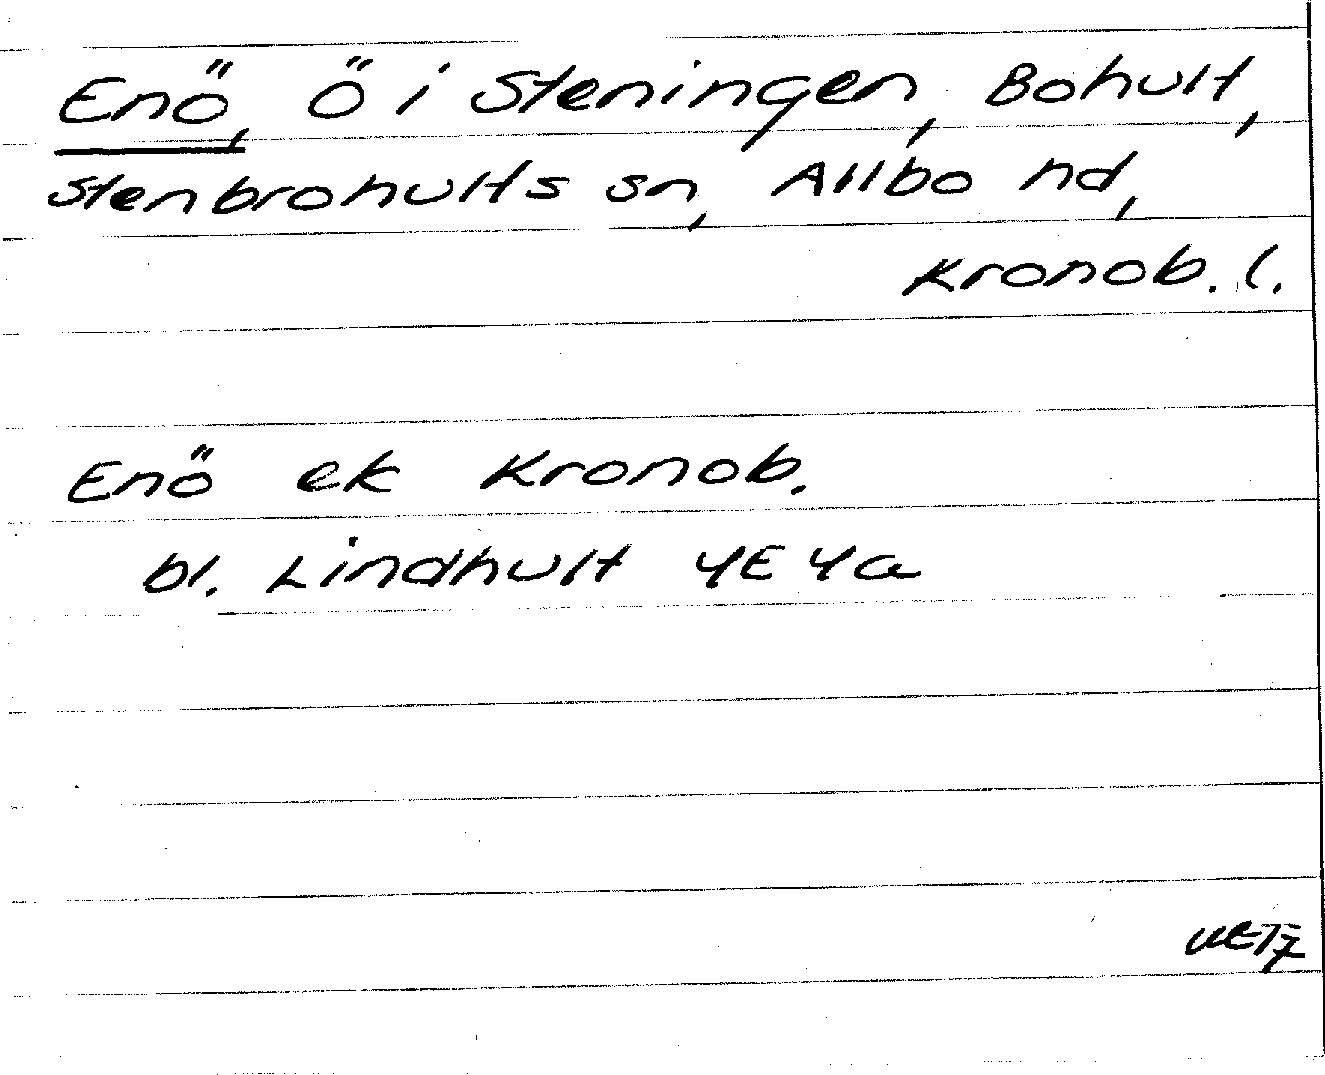 Enö, Ö i Steningen, Bohult,
Stenbrohults sn, Allbo hd,
Kronob. l.
Enö ek Kronob.
bl. Lindhult 4E4a